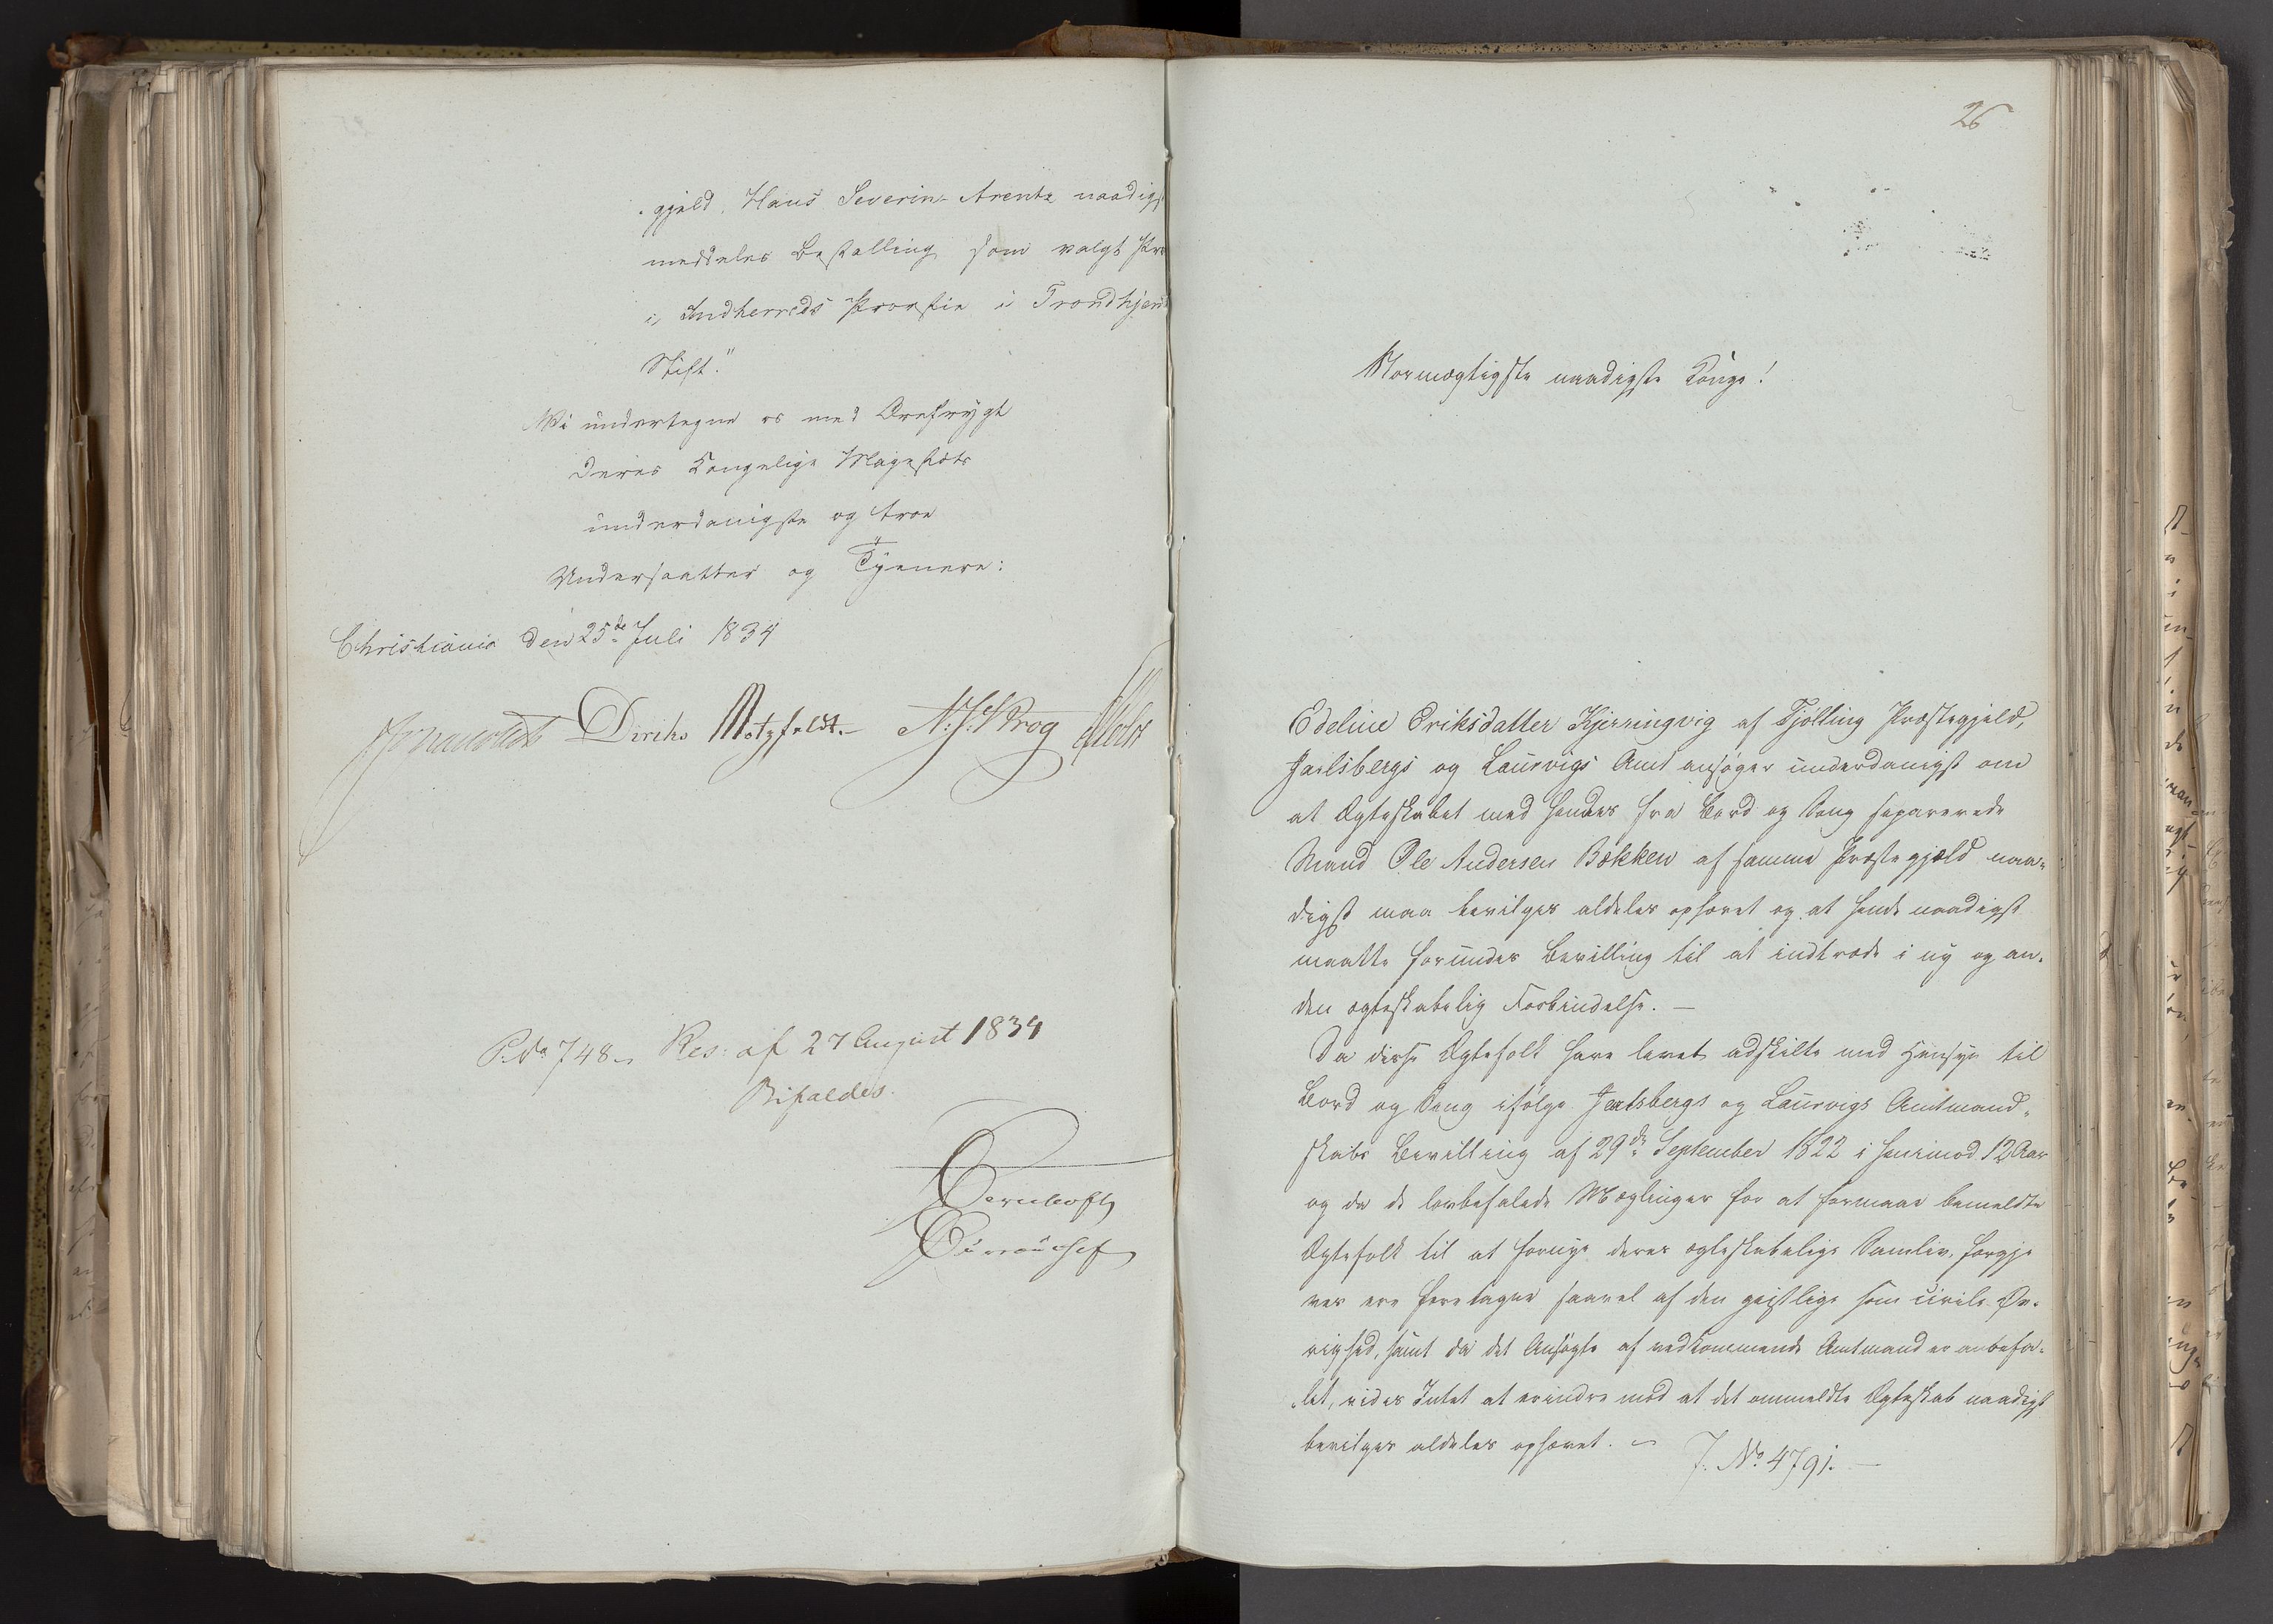 gjeld, Hans Severin Arentz naadigst
meddeles Bestalling som valgt Pro
i Indherreds Provstie i Trondhjems
Stift."
Vi undertegne os med Ærefrygt
Deres Kongelige Majestæts
underdanigste og troe
Undersaatter og Tjenere:
Christiania den 25de Juli 1834
Diriks Motzfeldt.- N. J. Krog
P. No 748 Res: af 27 August 1834
Bifaldes.
26
Stormægtigste naadigste Konge!
Edeline Eriksdatter Kjerringvig af Tjølling Præstegjeld,
Jarlsbergs og Laurvigs Amt ansøger underdanigst om
at Ægteskabet med hendes fra Bord og Seng separerede
Mand Ole Andersen Bækken af samme Præstegjæld naa-
digst maa bevilges aldeles ophævet og at hende naadigst
maatte forundes Bevilling til at indtræde i ny og an-
den ægteskabelig Forbindelse. —
Da disse Ægtefolk have levet adskilte med Hensyn til
Bord og Seng ifølge Jarlsbergs og Laurvigs Amtmand-
skabs Bevilling af 29de September 1822 i henimod 12 Aar
og da de lovbefalede Mæglinger for at formaae bemeldte
Ægtefolk til at fornye deres ægteskabelige Samliv, forgje
ves ere foretagne saavel af den geistlige som civile Øv-
righed, samt da det Ansøgte af vedkommende Amtmand er anbefa-
let, vides Intet at erindre mod at det ommeldte Ægteskab naadigst
bevilges aldeles ophævet. —
J. No 4791. —